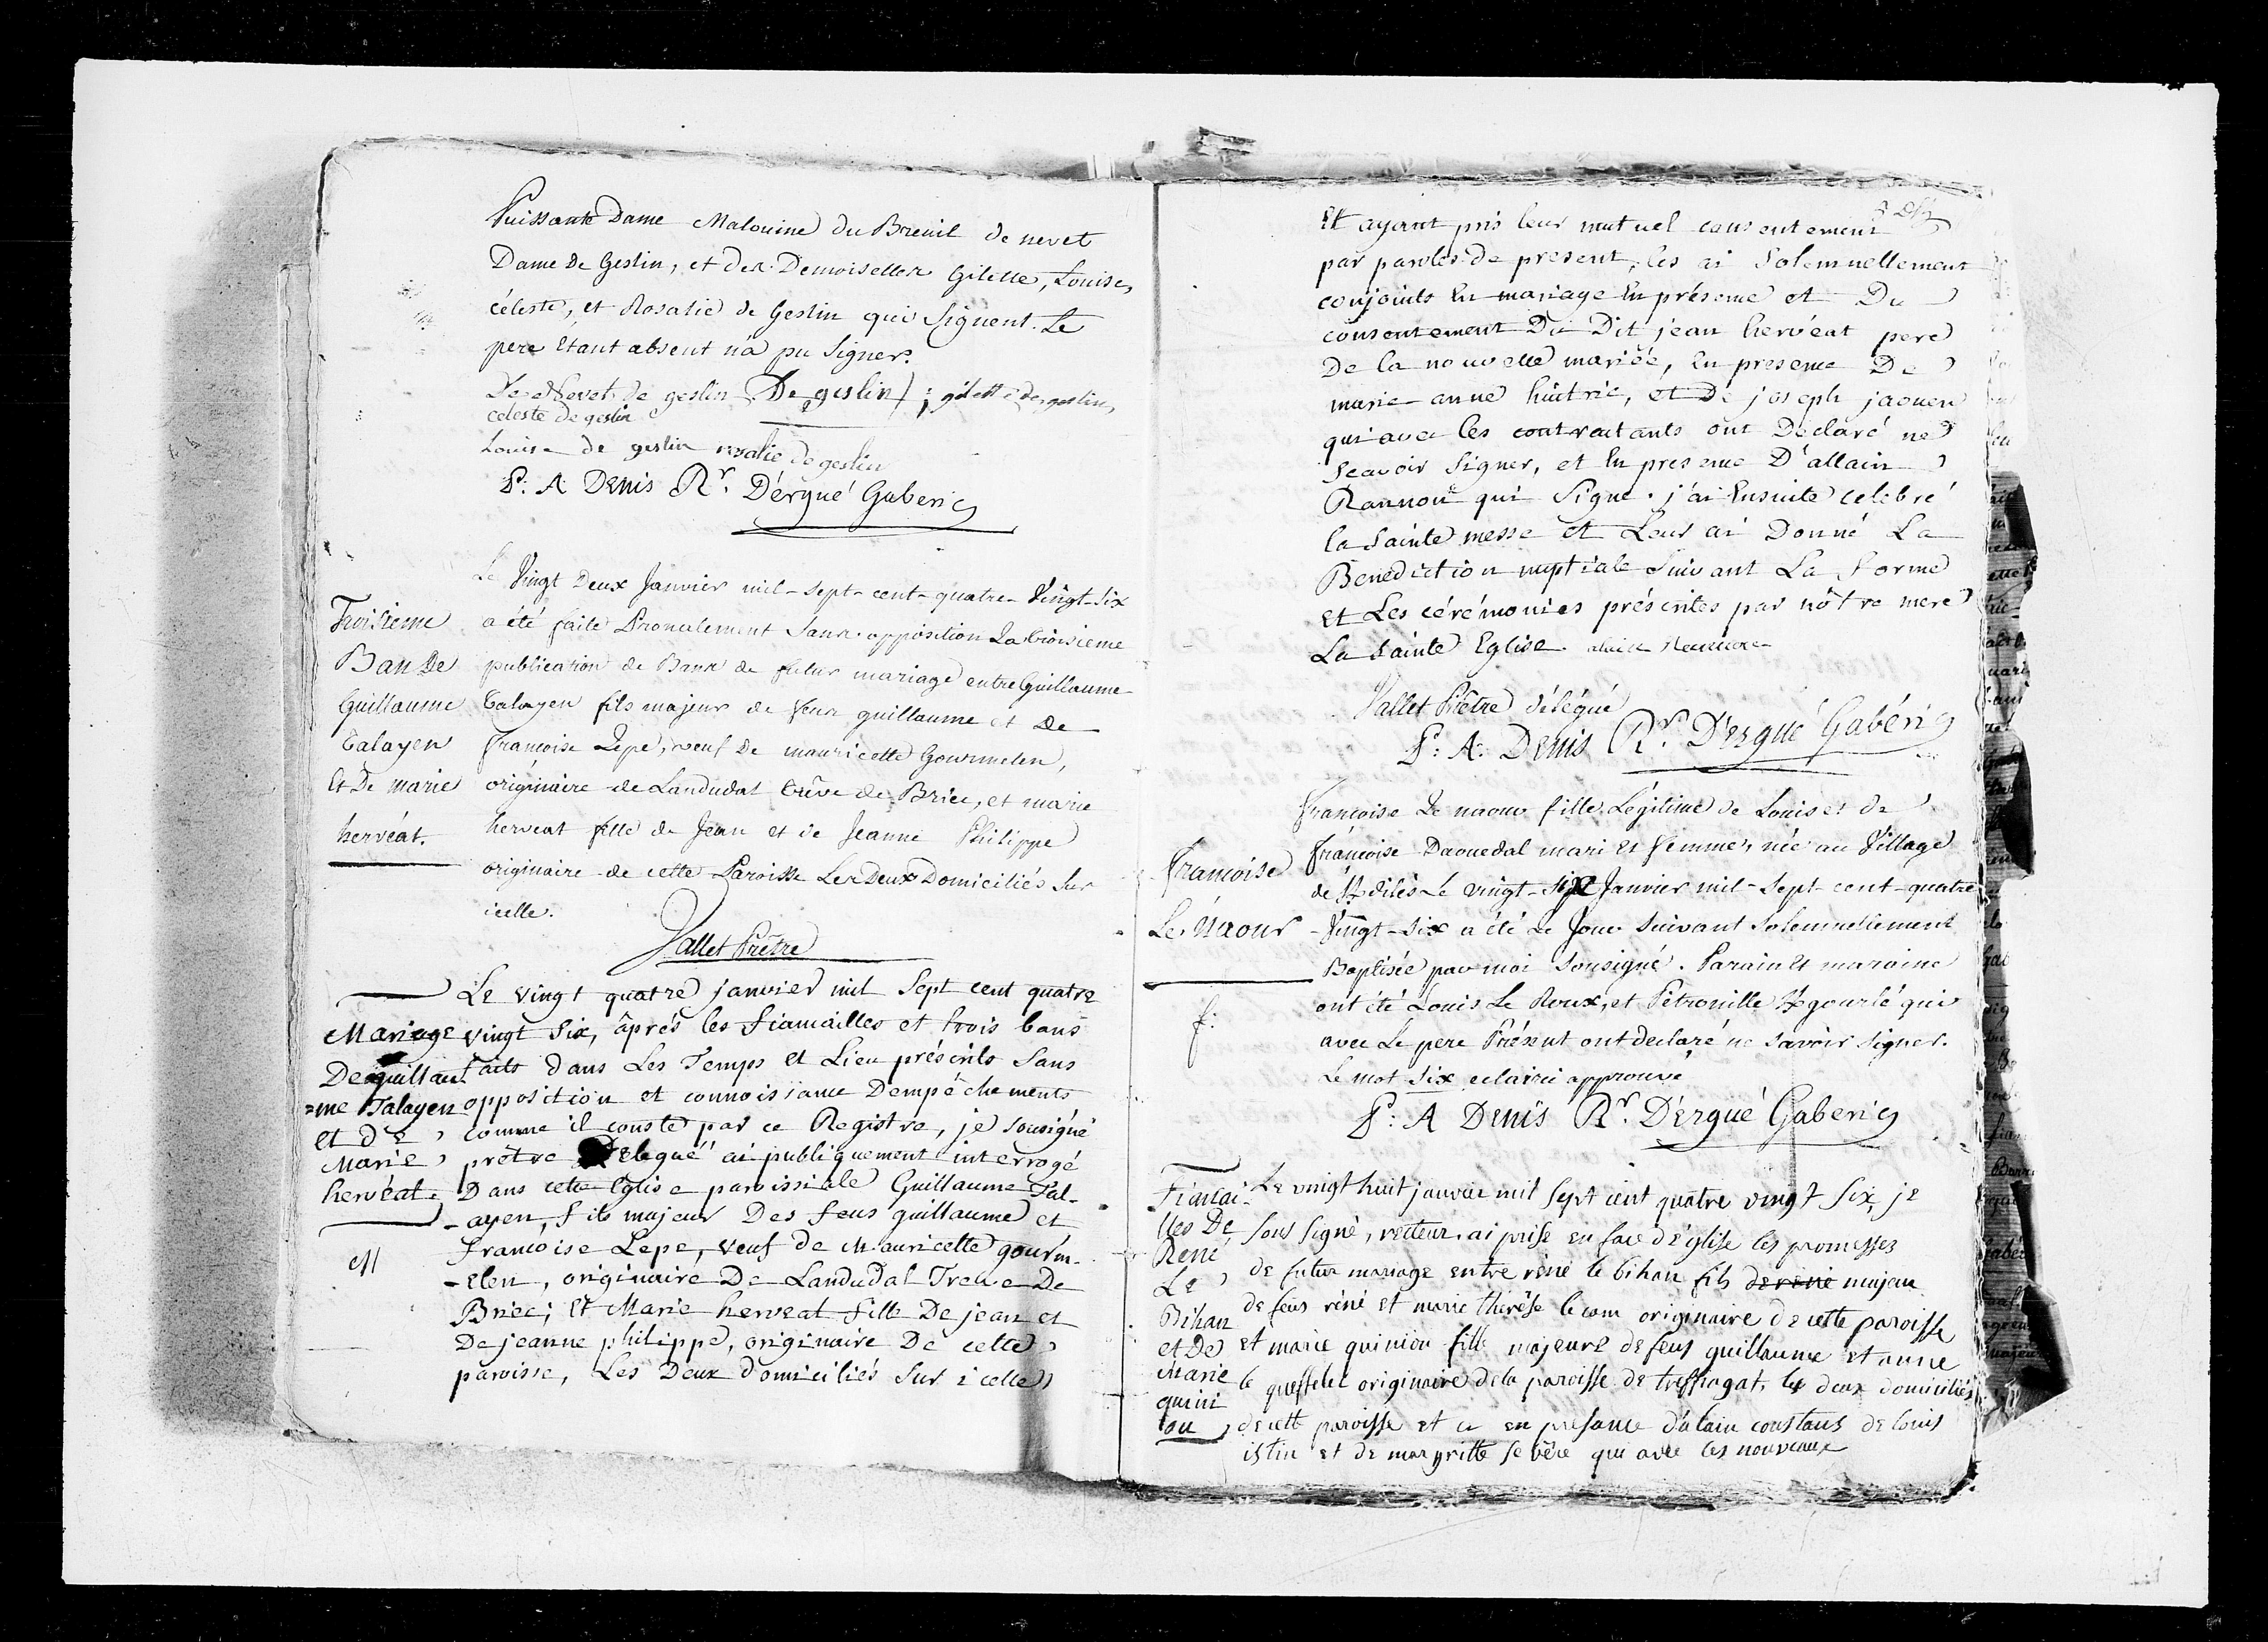 Puissante Dame Malouine du Breuil de nevet
Dame de Geslin, et des Demoiselles Gilette, Louise,
céleste, et Rosalie de Geslin qui Signent. Le
pere étant absent n'a pu Signer.
De Nevet de geslin De geslin ; gilette de geslin,
celeste de geslin
Louise de geslin rosalie de geslin
P: A: Denis Rr. D'ergué Gaberic
Le Vingt Deux Janvier mil-sept-cent-quatre-Vingt-Six
a été faite Pronalement Sans opposition La troisieme
publication de Bans de futur mariage entre Guillaume
Talayen fils majeur de feux guillaume et De
françoise Lepe, veuf De mauricette Gourmelen,
originaire de Landudal trêve de Briec, et marie
herveat fille de Jean et de Jeanne Philippe
originaire de cette Paroisse Les Deux Domiciliés Sur
icelle.
Troisieme
Ban De
Guillaume
Talayen
Et De marie
hervéat.
Vallet Prêtre
Le vingt quatre janvier mil Sept cent quatre
vingt Six, âprés les fiancailles et trois bans
faits dans Les Temps et Lieu préscrits Sans
opposition et connoissance Dempéchements
comme il conste par ce Registre, je Sousigné
prêtre Delegué ai publiquement interrogé
Dans cette Eglise paroissiale Guillaume Tal-
-ayen, fils majeur Des feus guillaume et
Francoise Lepe, veuf de Mauricette gourm-
-elen, originaire De Landudal Treve De
Briec; Et Marie herveat fille De jean et
De jeanne philippe, originaire De cette
paroisse, Les Deux domiciliés Sur icelle
Mariage
De guillau
=me Talayen
et de
Marie
hervéat.
M
Et ayant pris leur mutuel consentement
par paroles de present, les ai Solemnellement
conjoints En mariage En présence et Du
consentement Du Dit jean hervéat pere
De la nouvelle mariée, En presence De
marie-anne huitric, et De joseph jaouen
qui avec les contractants ont Déclaré ne
Scavoir Signer, et En presence D'allain
Rannou qui Signe. j'ai Ensuite celebré
la Sainte messe et Leur ai Donné La
Benediction nuptiale Suivant La Forme
et Les cérémonies préscrites par nôtre mere
La Sainte Eglise.
Vallet Prêtre délégué
P: A: Denis Rr. D'ergué Gabéric
Françoise Le naour fille Légitime de Louis et de
françoise Daouedal mari et femme, née au Village
de St. dilès Le vingt-Six Janvier mil-Sept-cent-quatre
-Vingt-Six a été Le Jour Suivant Solemnellement
Baptisée par moi Sousigné. Parain et maraine
ont été Louis Le Roux, et Pétronille gourlé qui
avec Le pere Présent ont declaré ne Savoir Signer.
Le mot Six eclairci approuvé
Françoise
Le Naour
f:
P: A Denis Rr. D'ergué Gaberic
Le vingt huit janvier mil Sept cent quatre vingt Six, je
Sous Signé, recteur, ai prise en face d'église les promesses
de futur mariage entre réné le bihan fils de réné majeur
de feus réné et marie thérése le corn originaire de cette paroisse
et marie quiniou fille majeure de feus guillaume et anne
le queffelec originaire de la paroisse de treffiagat, les deux domiciliés
de cette paroisse et ce en presance d'alain constans de louis
istin et de margritte le bére qui avec les nouveaux
Fiancai-
lles De
René
Le
Bihan
et De
Marie
quini
ou